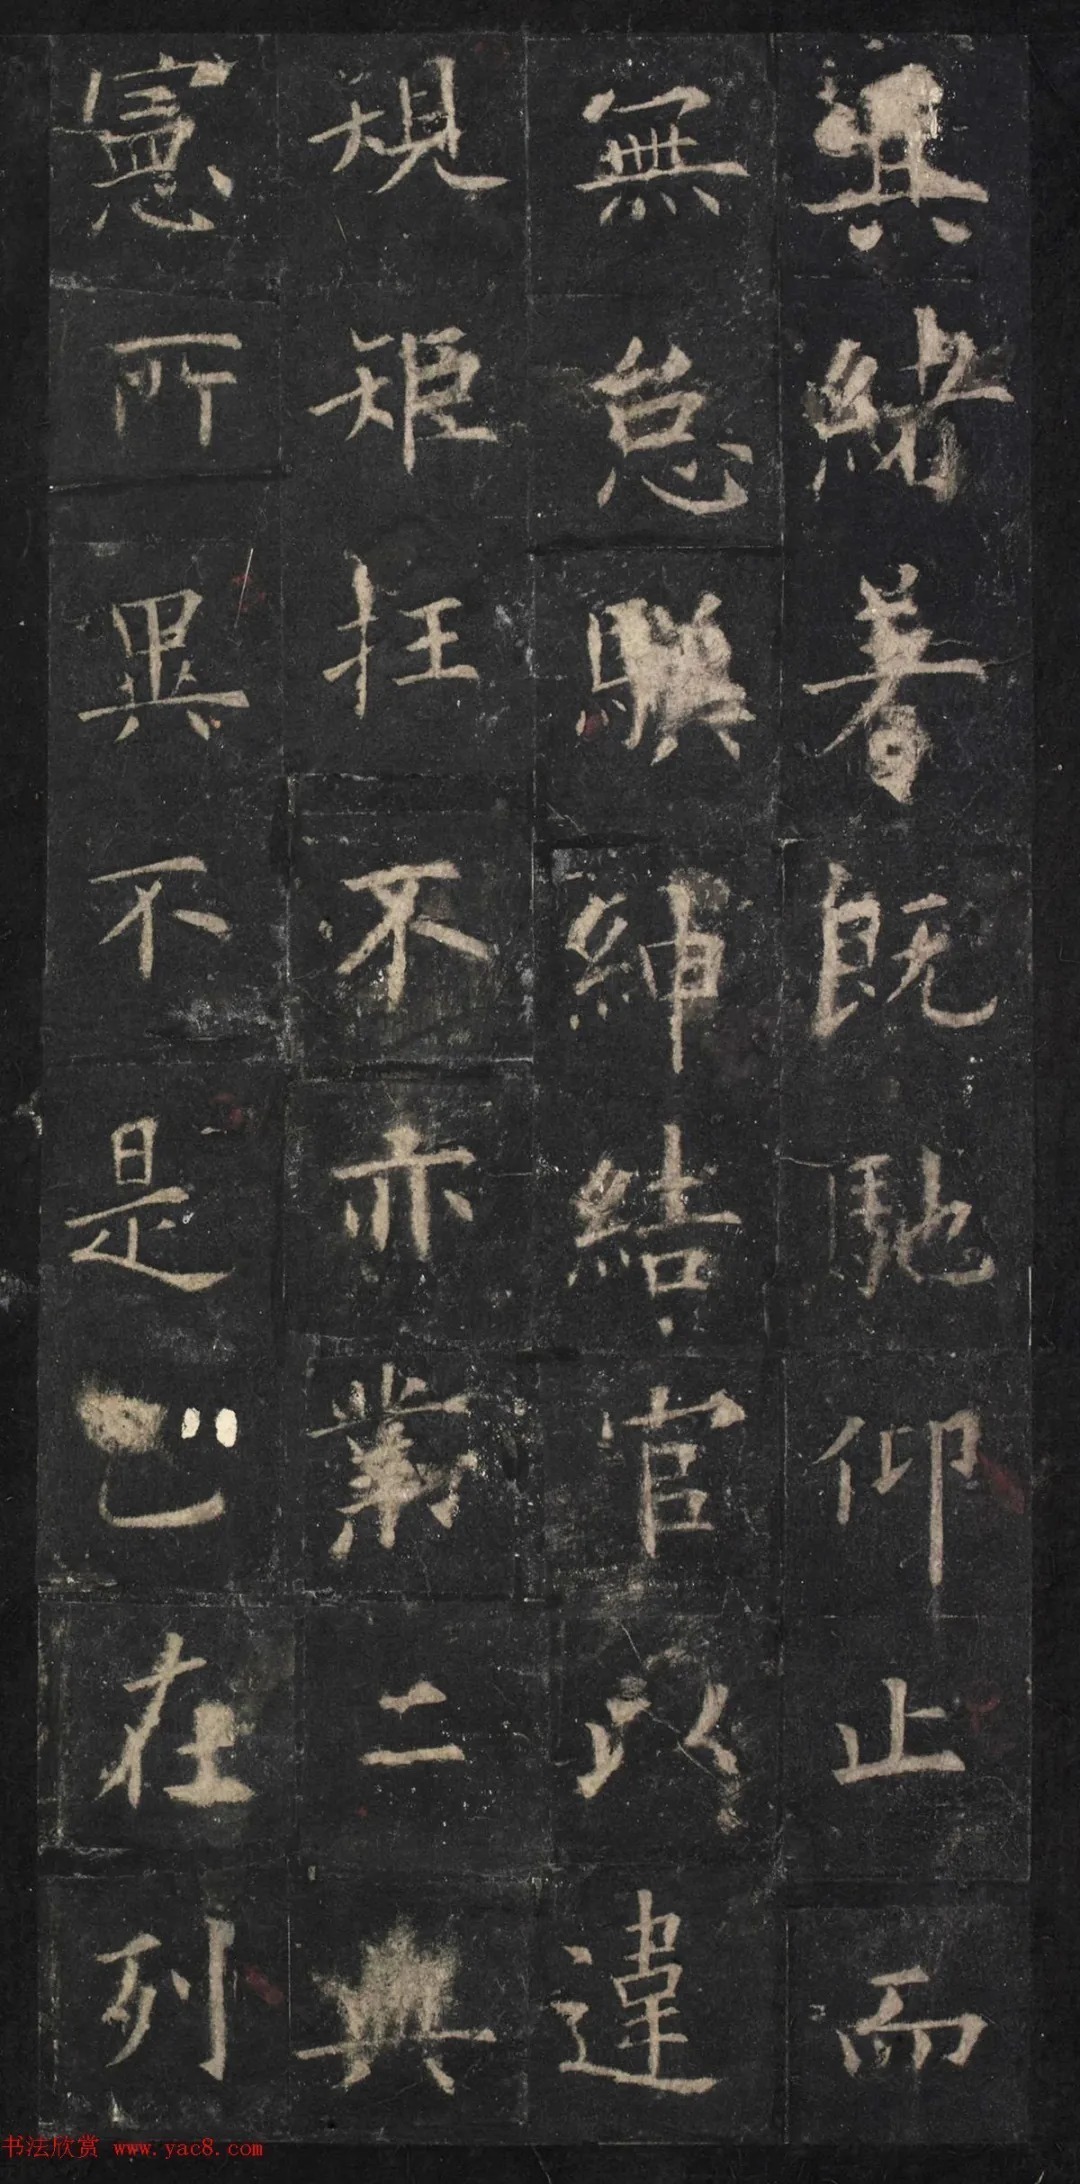 其緒著既馳仰止而
無怠驥紳結官以違
規矩抂不亦業二典
憲所異不是已在列
书法欣赏 www.yac8.com